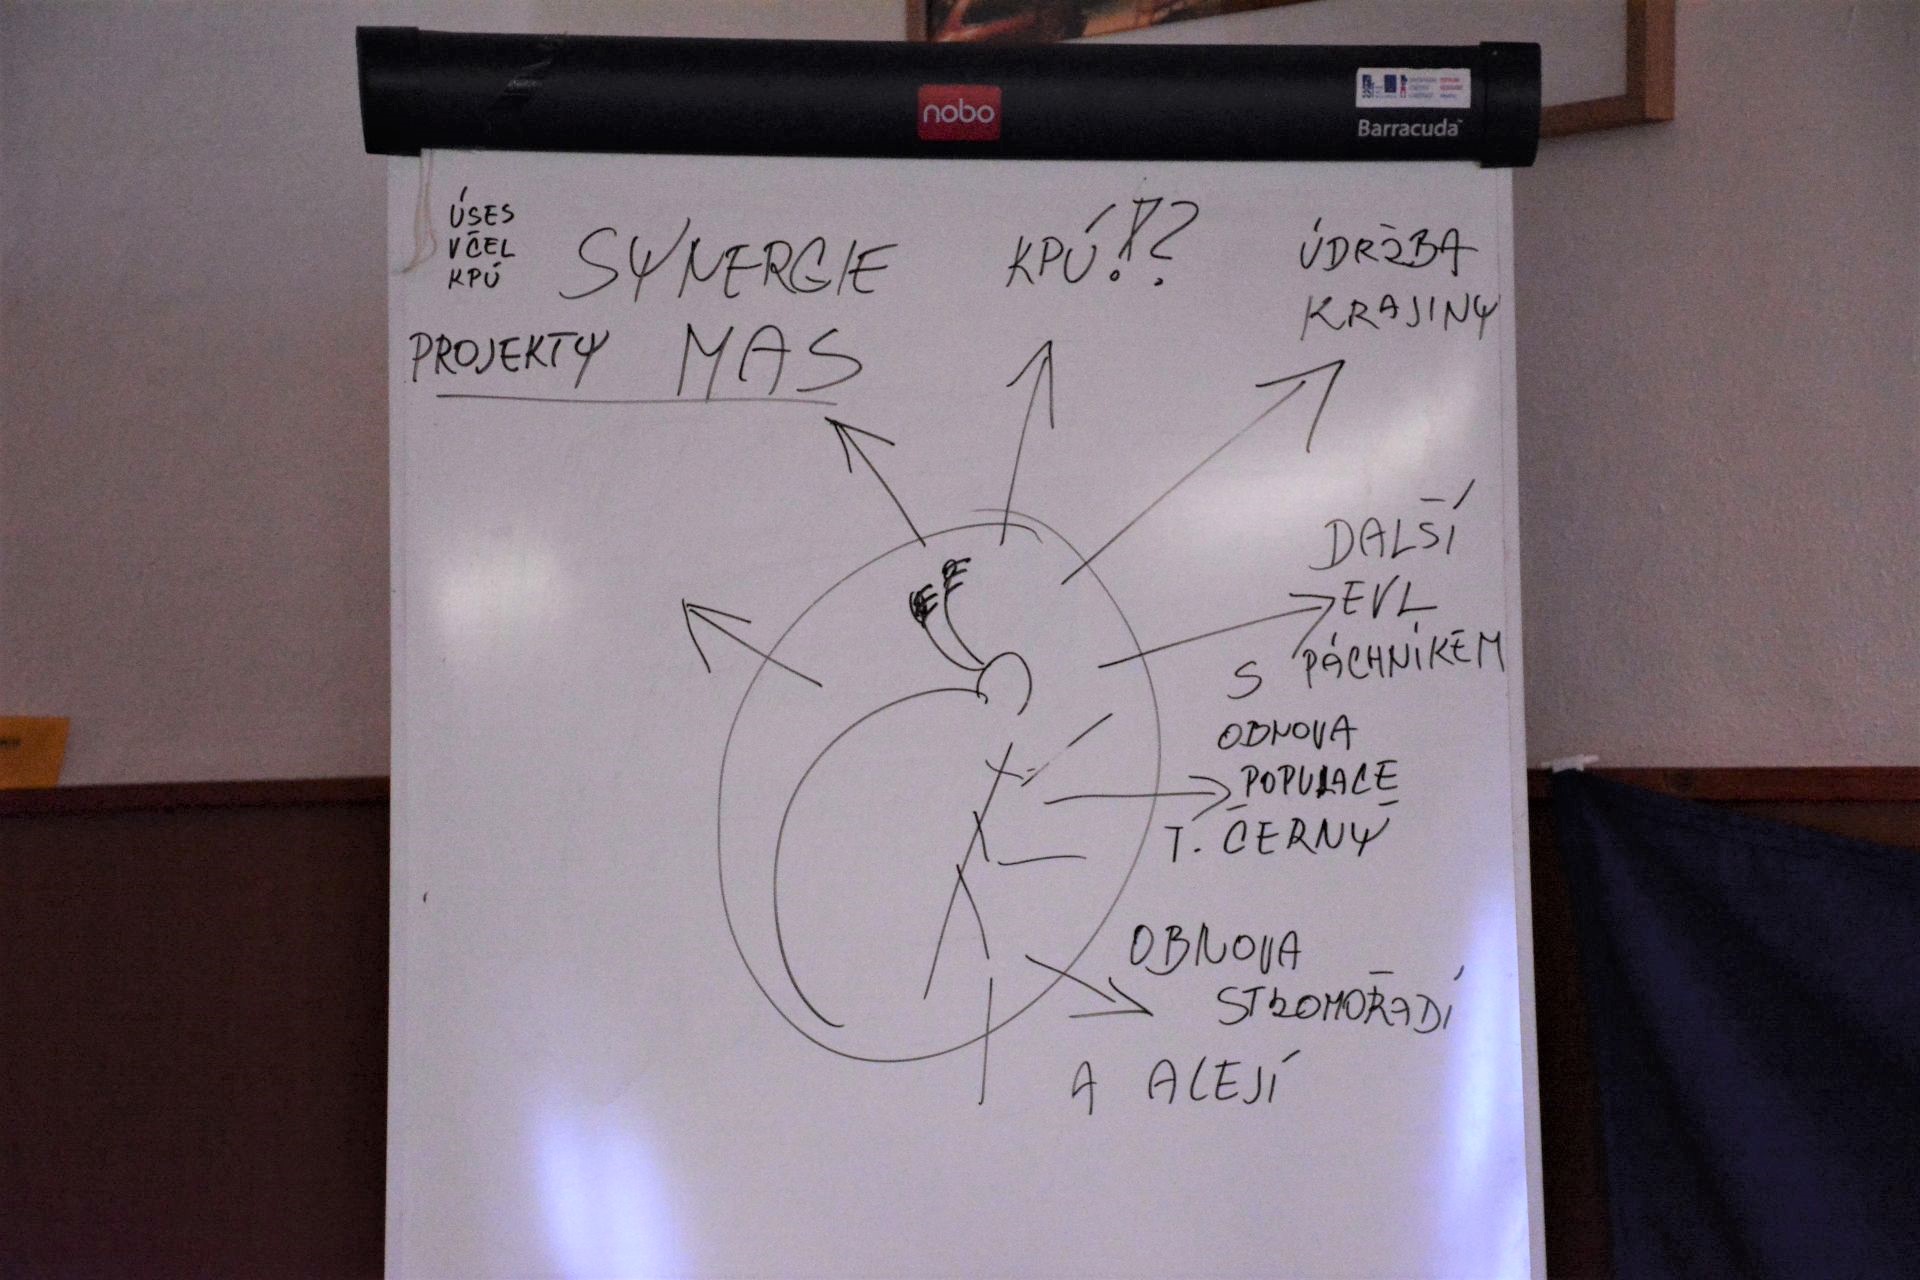 nobo
Barracuda™
ÚSES
VČEL
KPÚ
SYNERGIE
PROJEKTY MAS
KPÚ!?
ÚDRŽBA
KRAJINY
DALŠÍ
EVL
S PÁCHNÍKEM
OBNOVA
POPULACE
T. ČERNÝ
OBNOVA
STROMOŘADÍ
A ALEJÍ